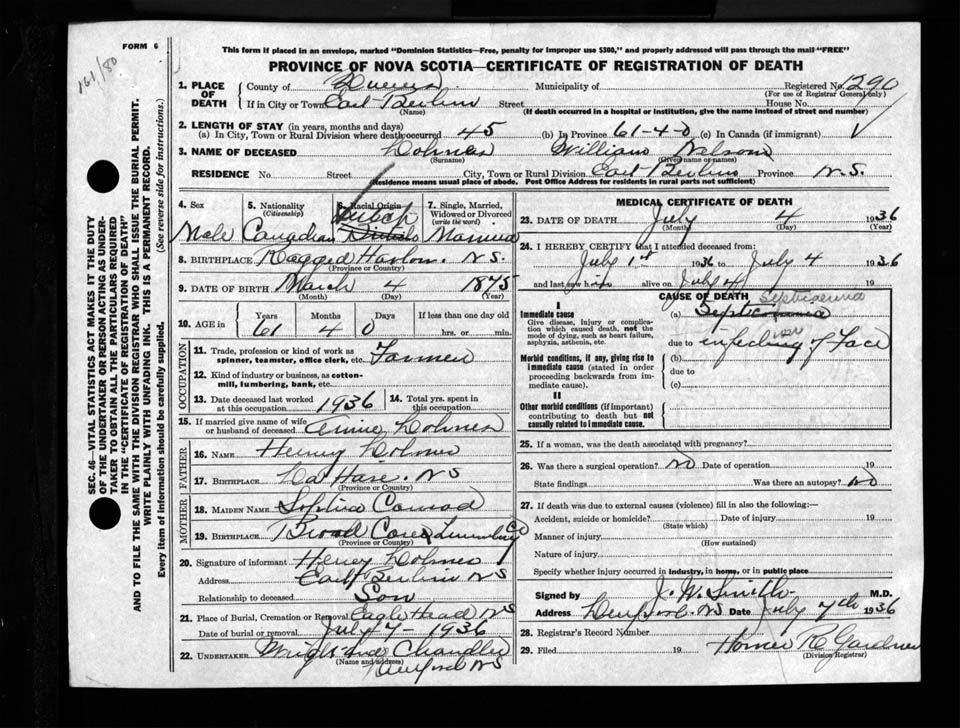 FORM 6
161/80
This form if placed in an envelope, marked "Dominion Statistics—Free, penalty for improper use $300," and properly addressed will pass through the mail "FREE"
PROVINCE OF NOVA SCOTIA—CERTIFICATE OF REGISTRATION OF DEATH
1. PLACE OF DEATH County of Queens Municipality of Registered No. 1290
(For use of Registrar General only)
If in City or Town East Berlin Street House No.
(Name) (If death occurred in a hospital or institution, give the name instead of street and number)
2. LENGTH OF STAY (in years, months and days)
(a) In City, Town or Rural Division where death occurred 45 (b) In Province 61-4-0 (c) In Canada (if immigrant)
3. NAME OF DECEASED William
(Surname) (Given name or names)
RESIDENCE No. Street City, Town or Rural Division East Berlin Province N.S.
(Residence means usual place of abode. Post Office Address for residents in rural parts not sufficient)
4. Sex Male
5. Nationality (Citizenship) Canadian
6. Racial Origin Dutch British
7. Single, Married, Widowed or Divorced (write the word) Married
8. BIRTHPLACE Ragged Harbour N.S.
(Province or Country)
9. DATE OF BIRTH March 4 1875
(Month) (Day) (Year)
10. AGE in Years 61 Months 4 Days 0 If less than one day old
hrs. or min.
OCCUPATION
11. Trade, profession or kind of work as spinner, teamster, office clerk, etc. Farmer
12. Kind of industry or business, as cotton-mill, lumbering, bank, etc.
13. Date deceased last worked at this occupation 1936
14. Total yrs. spent in this occupation
15. If married give name of wife or husband of deceased Annie
FATHER
16. NAME Henry
17. BIRTHPLACE La Have NS
(Province or Country)
MOTHER
18. MAIDEN NAME Sophia Conrad
19. BIRTHPLACE Broad Cove Lunenburg Co
(Province or Country)
20. Signature of informant Henry
Address East Berlin NS
Relationship to deceased Son
21. Place of Burial, Cremation or Removal Eagle Head NS
Date of burial or removal July 7-1936
22. UNDERTAKER Chandler
(Name and address) NS
MEDICAL CERTIFICATE OF DEATH
23. DATE OF DEATH July 4 1936
(Month) (Day) (Year)
24. I HEREBY CERTIFY that I attended deceased from:
July 1st 1936 to July 4 1936
and last saw him alive on July 4
CAUSE OF DEATH
I
Immediate cause
Give disease, injury or complication which caused death, not the mode of dying, such as heart failure, asphyxia, asthenia, etc.
(a) Septicaemia
due to infection of Face
Morbid conditions, if any, giving rise to immediate cause (stated in order proceeding backwards from immediate cause).
(b)
due to
(c)
II
Other morbid conditions (if important) contributing to death but not causally related to immediate cause.
25. If a woman, was the death associated with pregnancy?
26. Was there a surgical operation? No Date of operation 19
State findings Was there an autopsy? No
27. If death was due to external causes (violence) fill in also the following:—
Accident, suicide or homicide? Date of injury 19
(State which)
Manner of injury
(How sustained)
Nature of injury
Specify whether injury occurred in industry, in home, or in public place
Signed by J. W. Smith M.D.
Address Liverpool NS Date July 7th 1936
28. Registrar's Record Number
29. Filed 19 Homer R Gardner
(Division Registrar)
SEC. 46—VITAL STATISTICS ACT MAKES IT THE DUTY
OF THE UNDERTAKER OR PERSON ACTING AS UNDER-
TAKER TO OBTAIN ALL THE PARTICULARS REQUIRED
IN THE "CERTIFICATE OF REGISTRATION OF DEATH"
AND TO FILE THE SAME WITH THE DIVISION REGISTRAR WHO SHALL ISSUE THE BURIAL PERMIT.
WRITE PLAINLY WITH UNFADING INK. THIS IS A PERMANENT RECORD.
Every item of information should be carefully supplied. (See reverse side for instructions.)